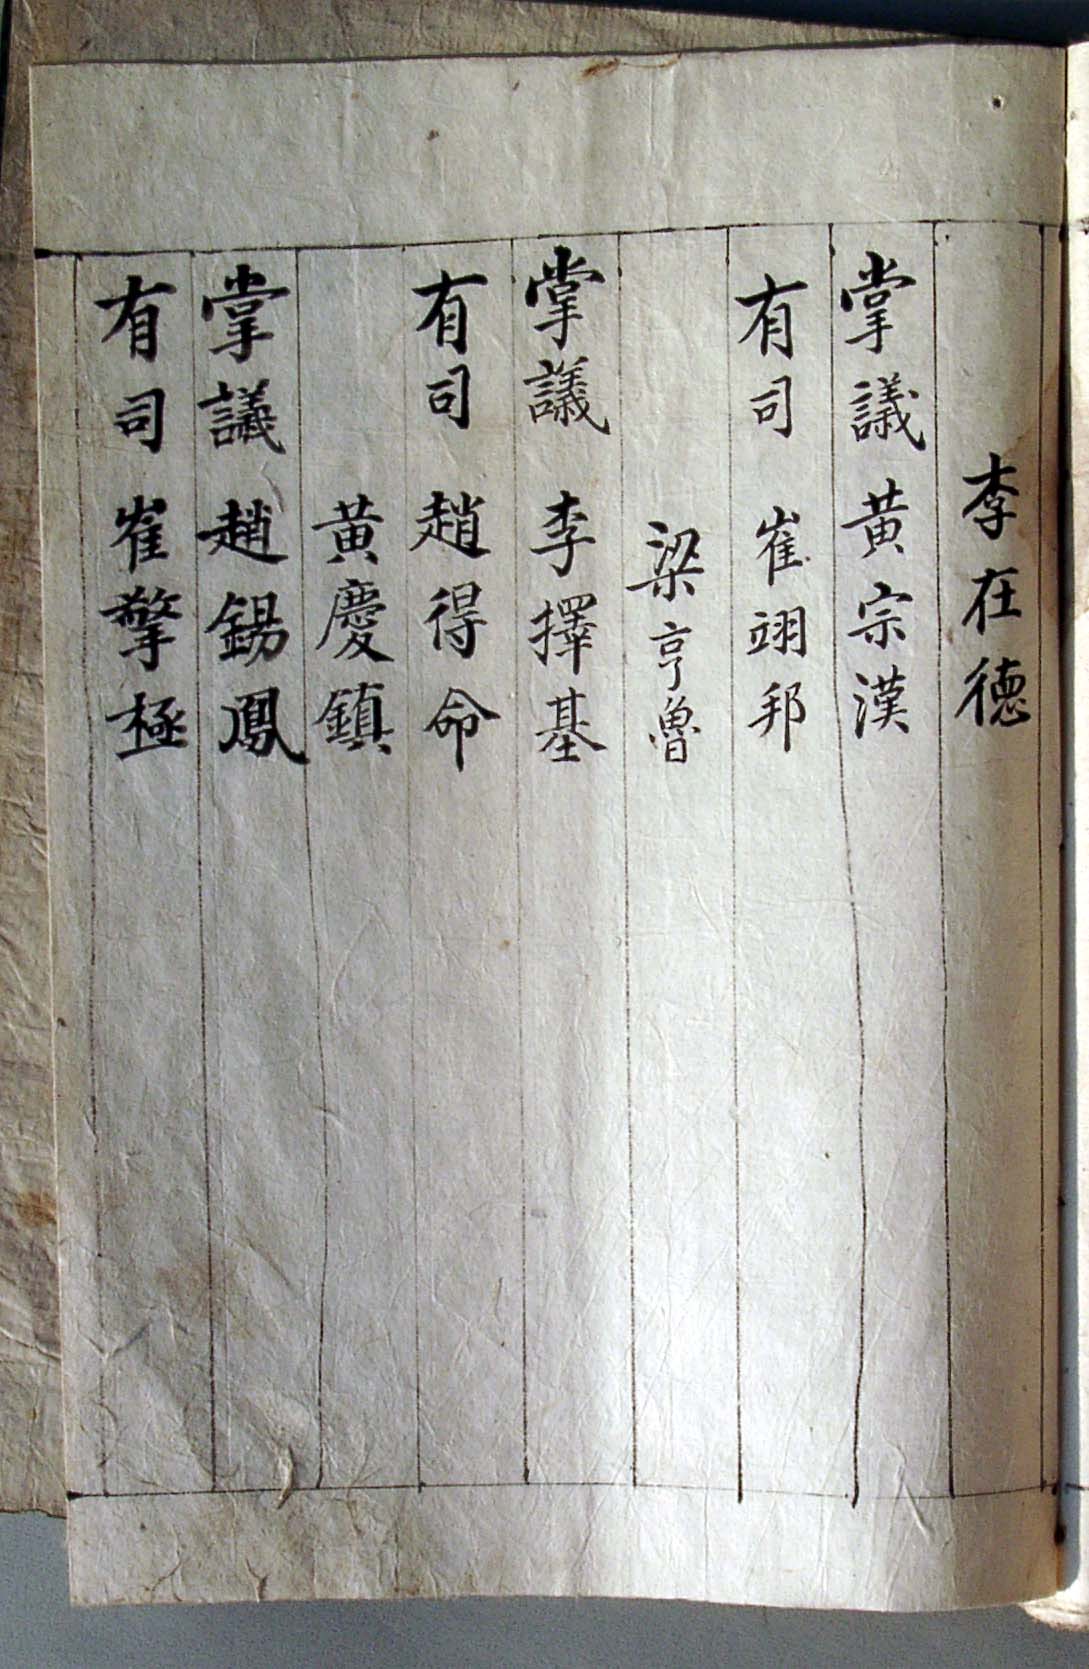 李在德
掌議 黃宗漢
有司 崔翊邦
梁亨魯
掌議 李擇基
有司 趙得命
黃慶鎮
掌議 趙錫鳳
有司 崔擎極